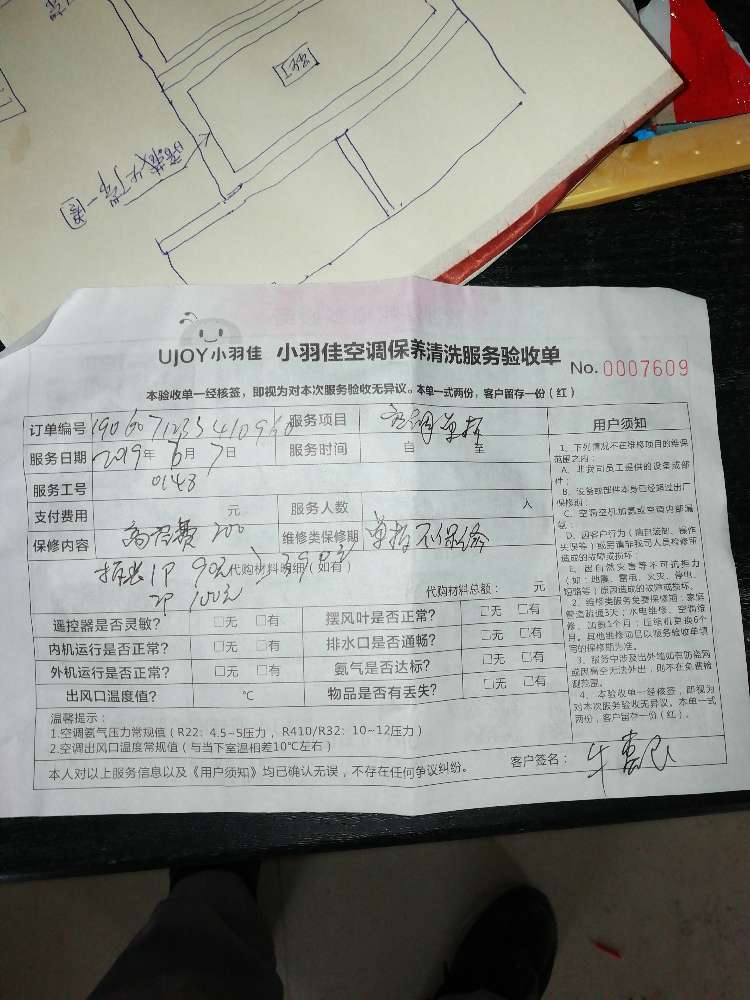 UJOY小羽佳 小羽佳空调保养清洗服务验收单 No. 0007609
本验收单一经核签，即视为对本次服务验收无异议。本单一式两份，客户留存一份（红）
订单编号 服务项目 空调单拆
服务日期 2019年 6月 7日 服务时间 自 至
服务工号 0148
支付费用 元 服务人数 人
保修内容 高空费 200 维修类保修期 单拆不保修
拆装 1P 90元 390元
代购材料明细（如有）
2P 100元
代购材料总额： 元
遥控器是否灵敏？ □无 □有 摆风叶是否正常？ □无 □有
内机运行是否正常？ □无 □有 排水口是否通畅？ □无 □有
外机运行是否正常？ □无 □有 氨气是否达标？ □无 □有
出风口温度值？ ℃ 物品是否有丢失？ □无 □有
温馨提示：
1.空调氨气压力常规值（R22：4.5~5压力，R410/R32：10~12压力）
2.空调出风口温度常规值（与当下室温相差10℃左右）
本人对以上服务信息以及《用户须知》均已确认无误，不存在任何争议纠纷。 客户签名：
用户须知
1、下列情况不在维修项目的维保
范围之内：
A、非我司员工提供的设备或部
件；
B、设备或部件本身已经超过出厂
保修期；
C、空调空机加氨或空调内部漏
氨；
D、因客户行为（擅自装制、操作
失误等）或另请非我司人员检修等
造成的故障或损坏；
E、因自然灾害等不可抗拒力
（如：地震、雷电、火灾、停电、
短路等）原因造成的故障或损坏。
2、维修类服务免费保修期：家庭
管道疏通3天；水电维修、空调维
修、加氨1个月；压缩机更换6个
月。其他维修项目以服务验收单填
写的保修期为准。
3、服务中涉及出外墙如有防盗网
或因高空无法外出，则不在免费检
测范围。
4、本验收单一经核签，即视为
对本次服务验收无异议。本单一式
两份，客户留存一份（红）。